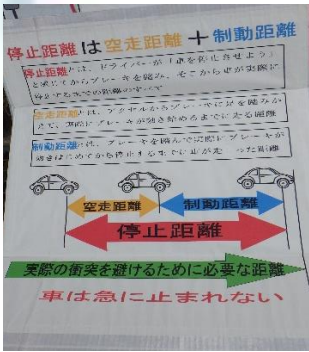 停止距離は空走距離＋制動距離
停止距離とは、ドライバーが「車を停止させよう」
と感じてからブレーキを踏み、そこから車が実際に
停止するまでの距離のすべて
空走距離とは、アクセルからブレーキに足を踏みか
えて、実際にブレーキが効き始めるまでに走る距離
制動距離とは、ブレーキを踏んで実際にブレーキが
効きはじめてから停止するまでに車が走った距離
空走距離 制動距離
停止距離
実際の衝突を避けるために必要な距離
車は急に止まれない